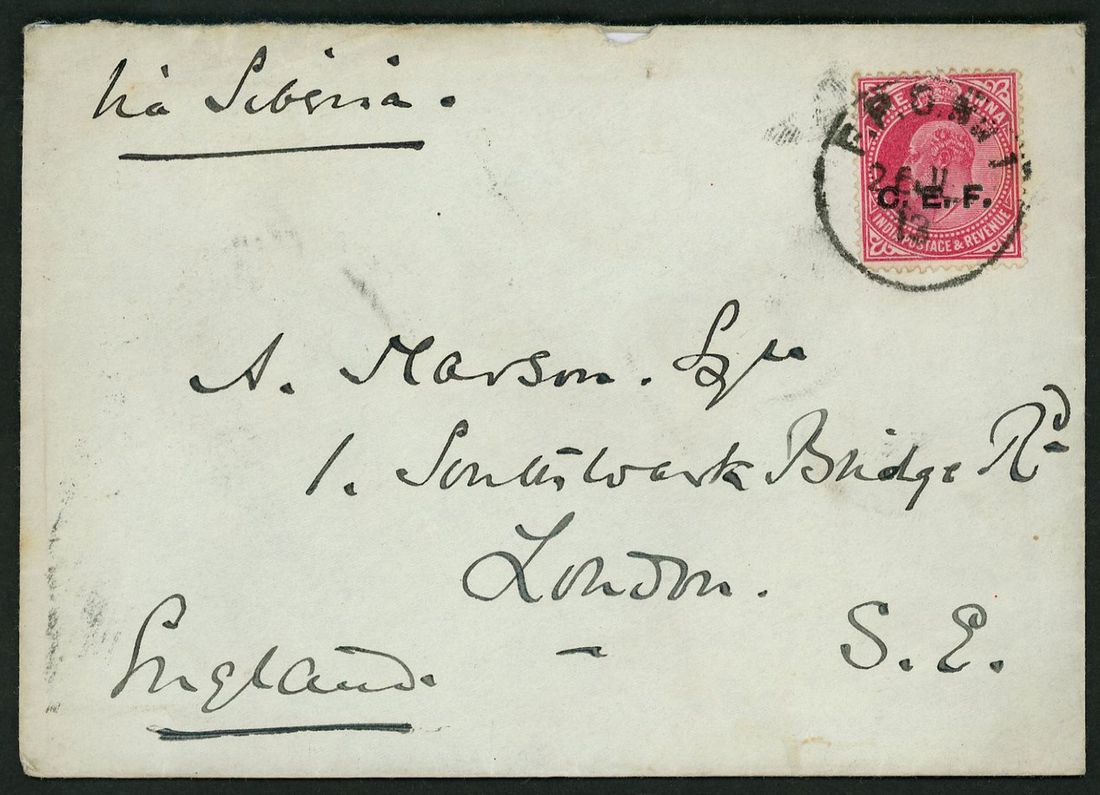 Via Siberia.
ONE ANNA
F.P.O. No 1
C. E. F.
13
INDIA POSTAGE & REVENUE
A. Marson. Esqre
1. Southwark Bridge Rd
London.
S. E.
England.